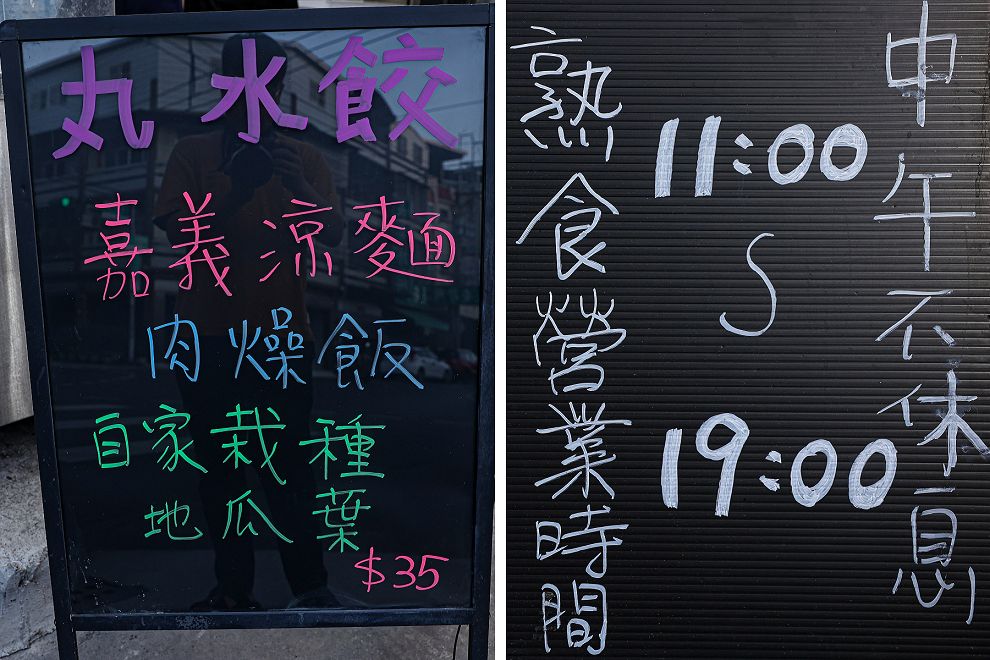 丸水餃
嘉義涼麵
肉燥飯
自家栽種
地瓜葉
$35
中午不休息
11:00
~
19:00
熟食營業時間